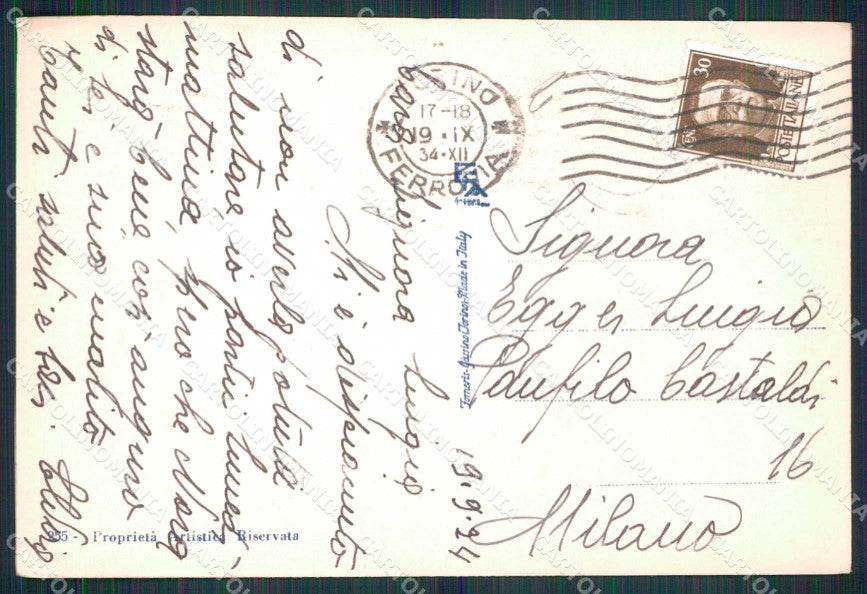 19.9.34
Cara Signora Luigia
Mi è dispiaciuto
di non averla potuta
salutare io partii lunedì
mattina, spero che
starà bene così auguro
di lei e suo marito
Tanti saluti e baci
Signora
Egger Luigia
Panfilo Castaldi
16
Milano
TORINO
17-18
19·IX
34·XII
FERROVIA
30
POSTE ITALIANE
Fornero-Garrino Torino-Made in Italy
255 - Proprietà Artistica Riservata
CARTOLINOMANIA